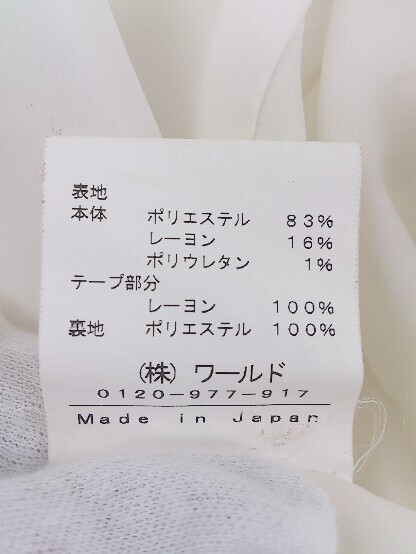 表地
本体 ポリエステル 83%
レーヨン 16%
ポリウレタン 1%
テープ部分
レーヨン 100%
裏地 ポリエステル 100%
(株) ワールド
0120-977-917
Made in Japan